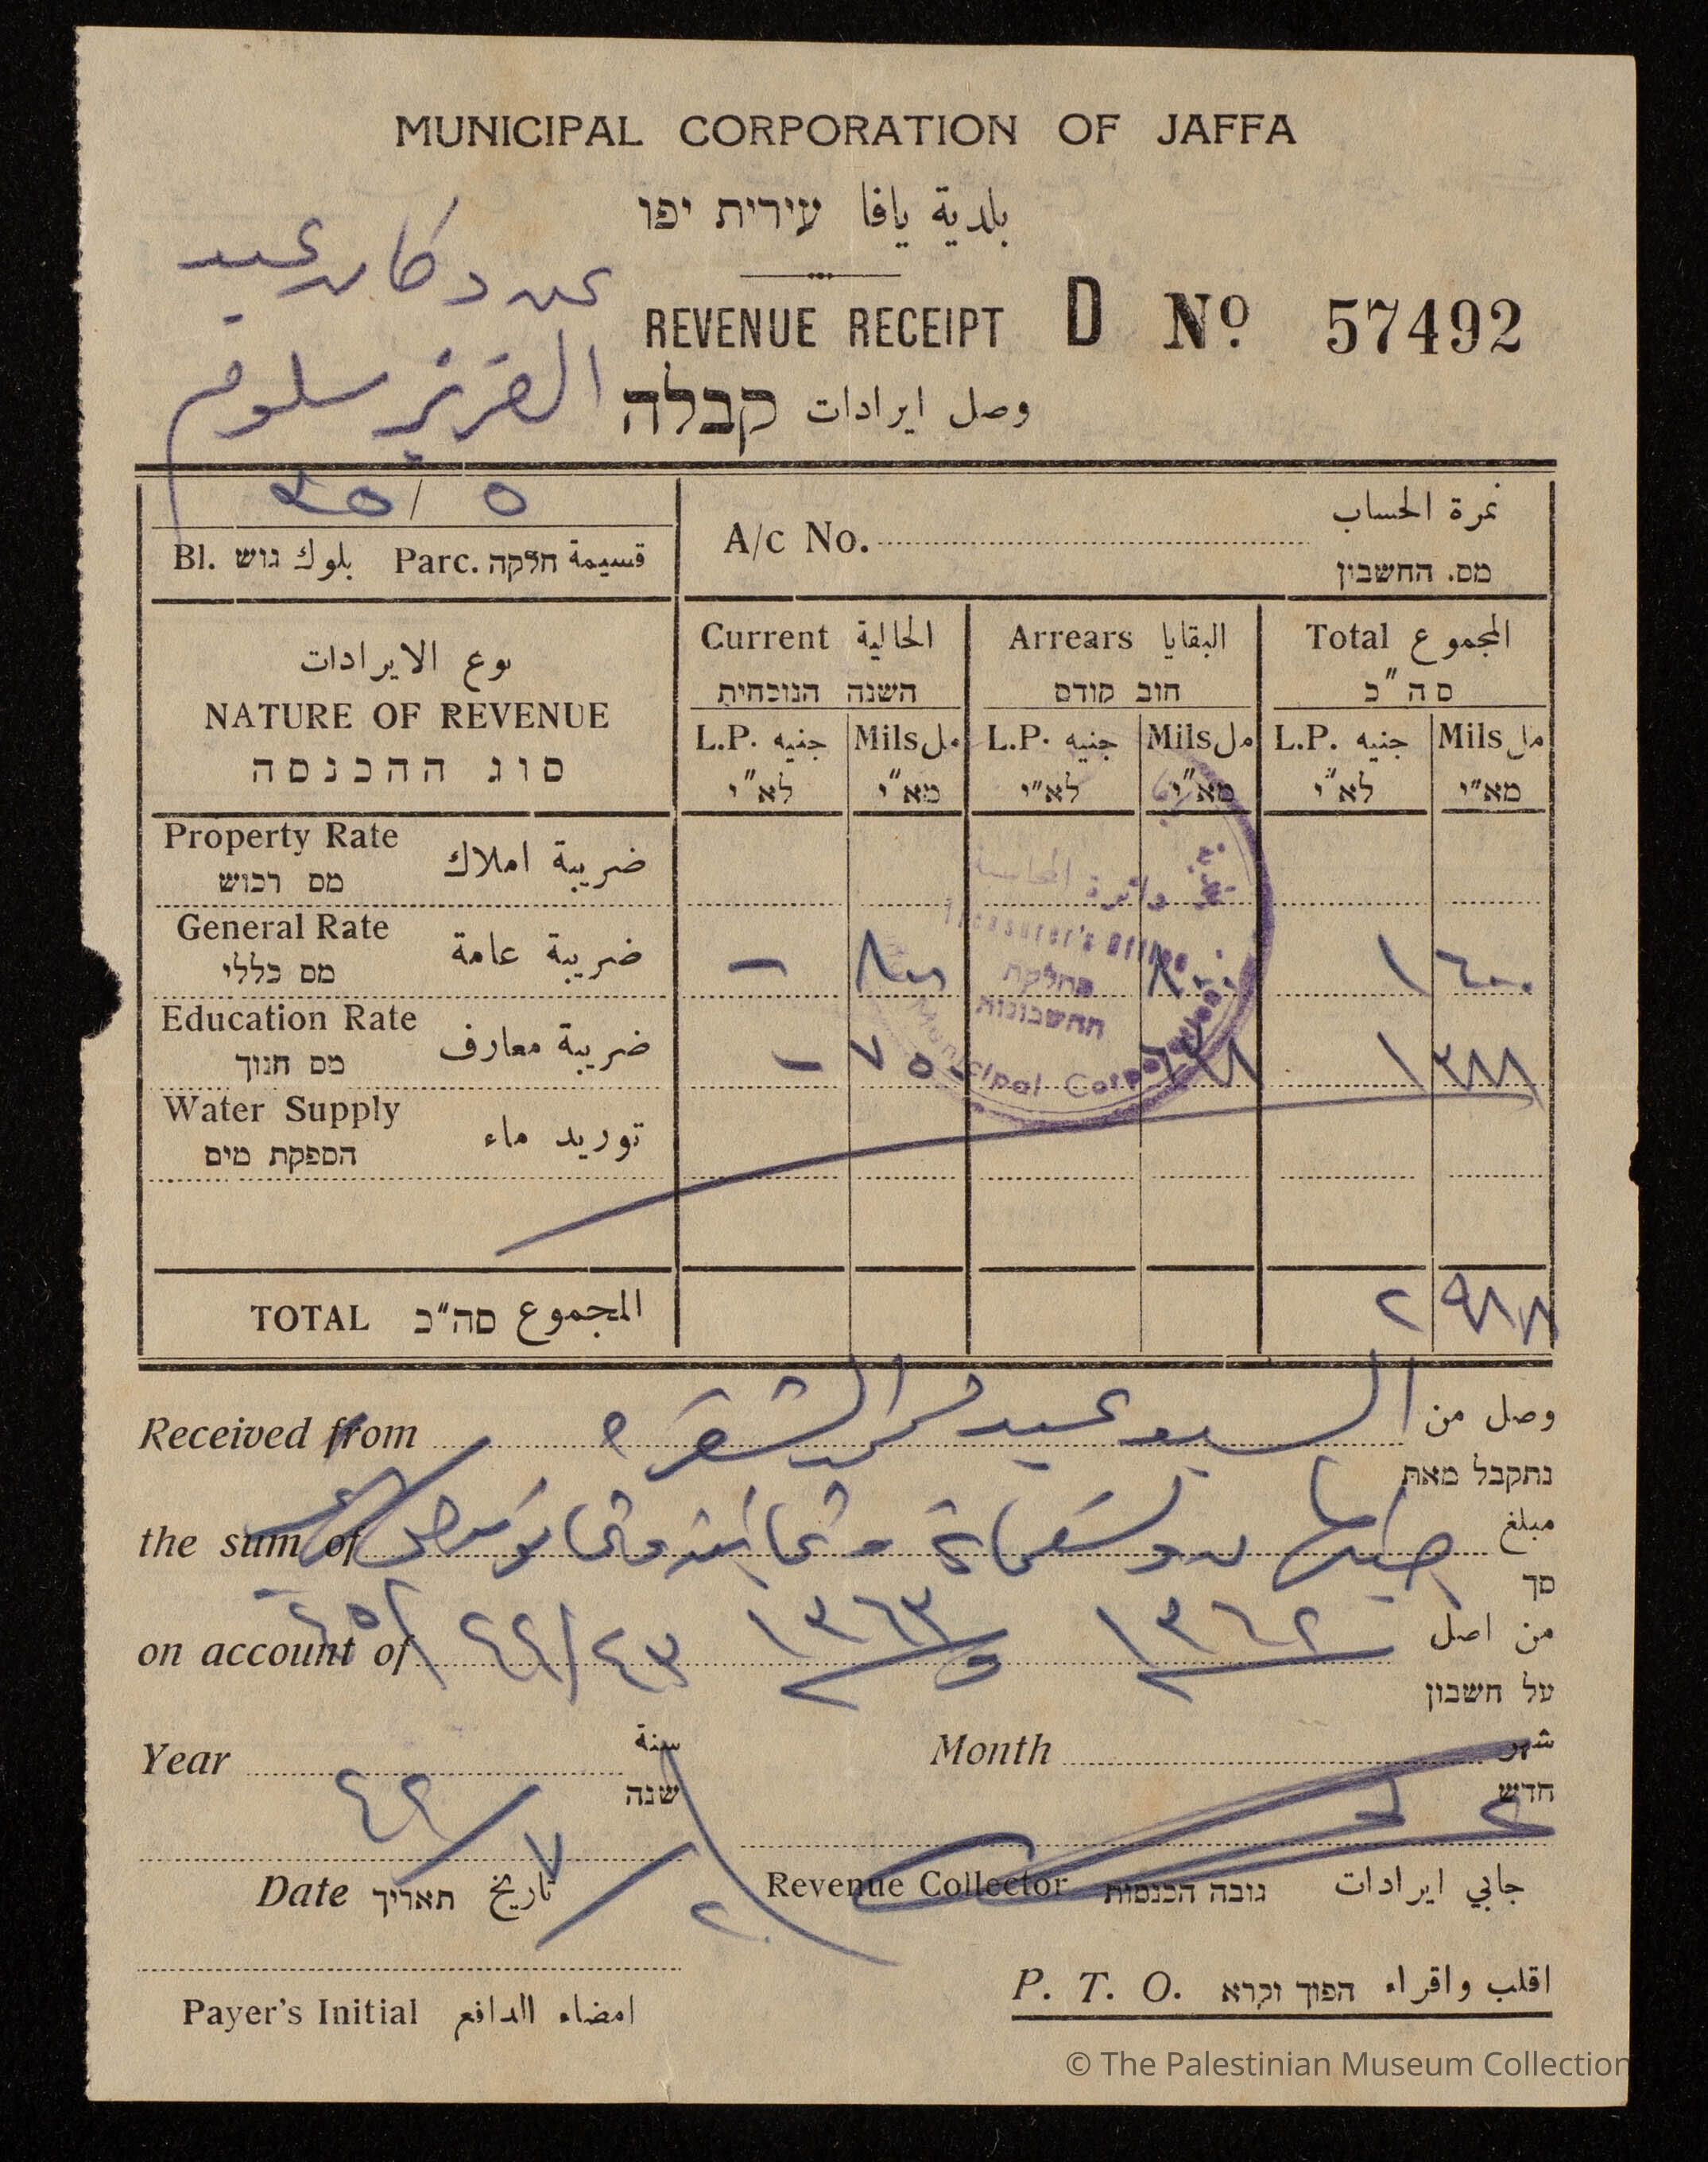 MUNICIPAL CORPORATION OF JAFFA
بلدية يافا עירית יפו
عن دكان عبد
العزيز سلوم
REVENUE RECEIPT D No. 57492
وصل ايرادات קבלה
٥ /
Bl. בلوك גוש Parc. קسيمة חלקה
A/c No. نمرة الحساب
מס. החשבון
نوع الايرادات
NATURE OF REVENUE
סוג ההכנסה
Current الحالية Arrears البقايا Total المجموع
השנה הנוכחית חוב קודם סה"כ
L.P. جنيه Mils مل L.P. جنيه Mils مل L.P. جنيه Mils مل
לא"י מא"י לא"י מא"י לא"י מא"י
Property Rate ضريبة املاك
מס רכוש
General Rate ضريبة عامة
מס כללי
- ٨٠٠ ٨٠٠ ١ ٦٠٠
Education Rate ضريبة معارف
מס חנוך
- ٧٥٠ ٦٣٨ ١ ٣٨٨
Water Supply توريد ماء
הספקת מים
دائرة المحاسبة
Treasurer's Office
מחלקת
החשבונות
Municipal Corporation
TOTAL סה"כ المجموع
٢ ٩٨٨
Received from السيد عبد الرحمن وصل من
נתקבל מאת
the sum of جنيهان وتسعماية وثمانية وثمانون مل مبلغ
סך
on account of ١٣٦٢ و ١٣٦٣ ٤٣/٤٤ من اصل
על חשבון
Year سنة Month شهر
שנה חדש
٢٠/٧/٤٤
Date תאריך تاريخ Revenue Collector גובה הכנסות جابي ايرادات
Payer's Initial امضاء الدافع
P. T. O. הפוך וקרא اقلب واقراء
© The Palestinian Museum Collection